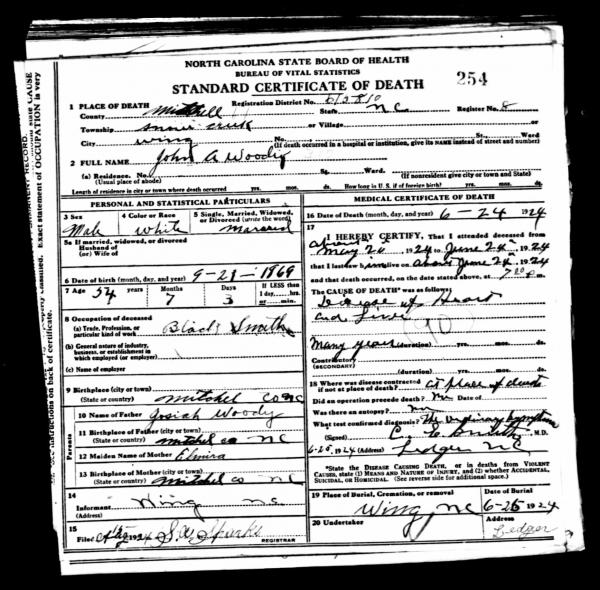 NORTH CAROLINA STATE BOARD OF HEALTH
BUREAU OF VITAL STATISTICS
STANDARD CERTIFICATE OF DEATH 254
1 PLACE OF DEATH Registration District No. Register No. 8
County Mitchell State NC
Township Snow Creek or Village
City Wing No. St. Ward
(If death occurred in a hospital or institution, give its NAME instead of street and number)
2 FULL NAME John A Woody
(a) Residence. No. St. Ward.
(Usual place of abode) (If nonresident give city or town and State)
Length of residence in city or town where death occurred yrs. mos. ds. How long in U. S. if of foreign birth? yrs. mos. ds.
PERSONAL AND STATISTICAL PARTICULARS
3 Sex 4 Color or Race 5 Single, Married, Widowed, or Divorced (write the word)
Male White Married
5a If married, widowed, or divorced
Husband of
(or) Wife of
6 Date of birth (month, day, and year) 9-21-1869
7 Age 54 years Months 7 Days 3 If LESS than 1 day, hrs. or min.
8 Occupation of deceased
(a) Trade, Profession, or particular kind of work Black Smith
(b) General nature of industry, business, or establishment in which employed (or employer)
(c) Name of employer
9 Birthplace (city or town)
(State or country) Mitchel co NC
Parents
10 Name of Father Josiah Woody
11 Birthplace of Father (city or town)
(State or country) Mitchel co NC
12 Maiden Name of Mother Elmira
13 Birthplace of Mother (city or town)
(State or country) Mitchel co NC
14
Informant Wing N.C.
(Address)
15
Filed 1924 S.W. Sparks
REGISTRAR
MEDICAL CERTIFICATE OF DEATH
16 Date of Death (month, day, and year) 6-24 1924
17
I HEREBY CERTIFY, That I attended deceased from
about May 20 1924 to June 24 1924
that I last saw him alive on about June 24 1924
and that death occurred, on the date stated above, at 7 m.
The CAUSE OF DEATH* was as follows:
Disease of Heart
and Liver
90
Many years (duration) yrs. mos. ds.
Contributory
(SECONDARY)
(duration) yrs. mos. ds.
18 Where was disease contracted
if not at place of death? at place of death
Did an operation precede death? No Date of
Was there an autopsy? no
What test confirmed diagnosis? The ordinary symptoms
(Signed) M.D.
1924 (Address) Ledger NC
*State the DISEASE CAUSING DEATH, or in deaths from VIOLENT CAUSES, state (1) MEANS AND NATURE OF INJURY, and (2) whether ACCIDENTAL, SUICIDAL, or HOMICIDAL. (See reverse side for additional space.)
19 Place of Burial, Cremation, or removal Date of Burial
Wing, NC 6-25 1924
20 Undertaker Address
Ledger